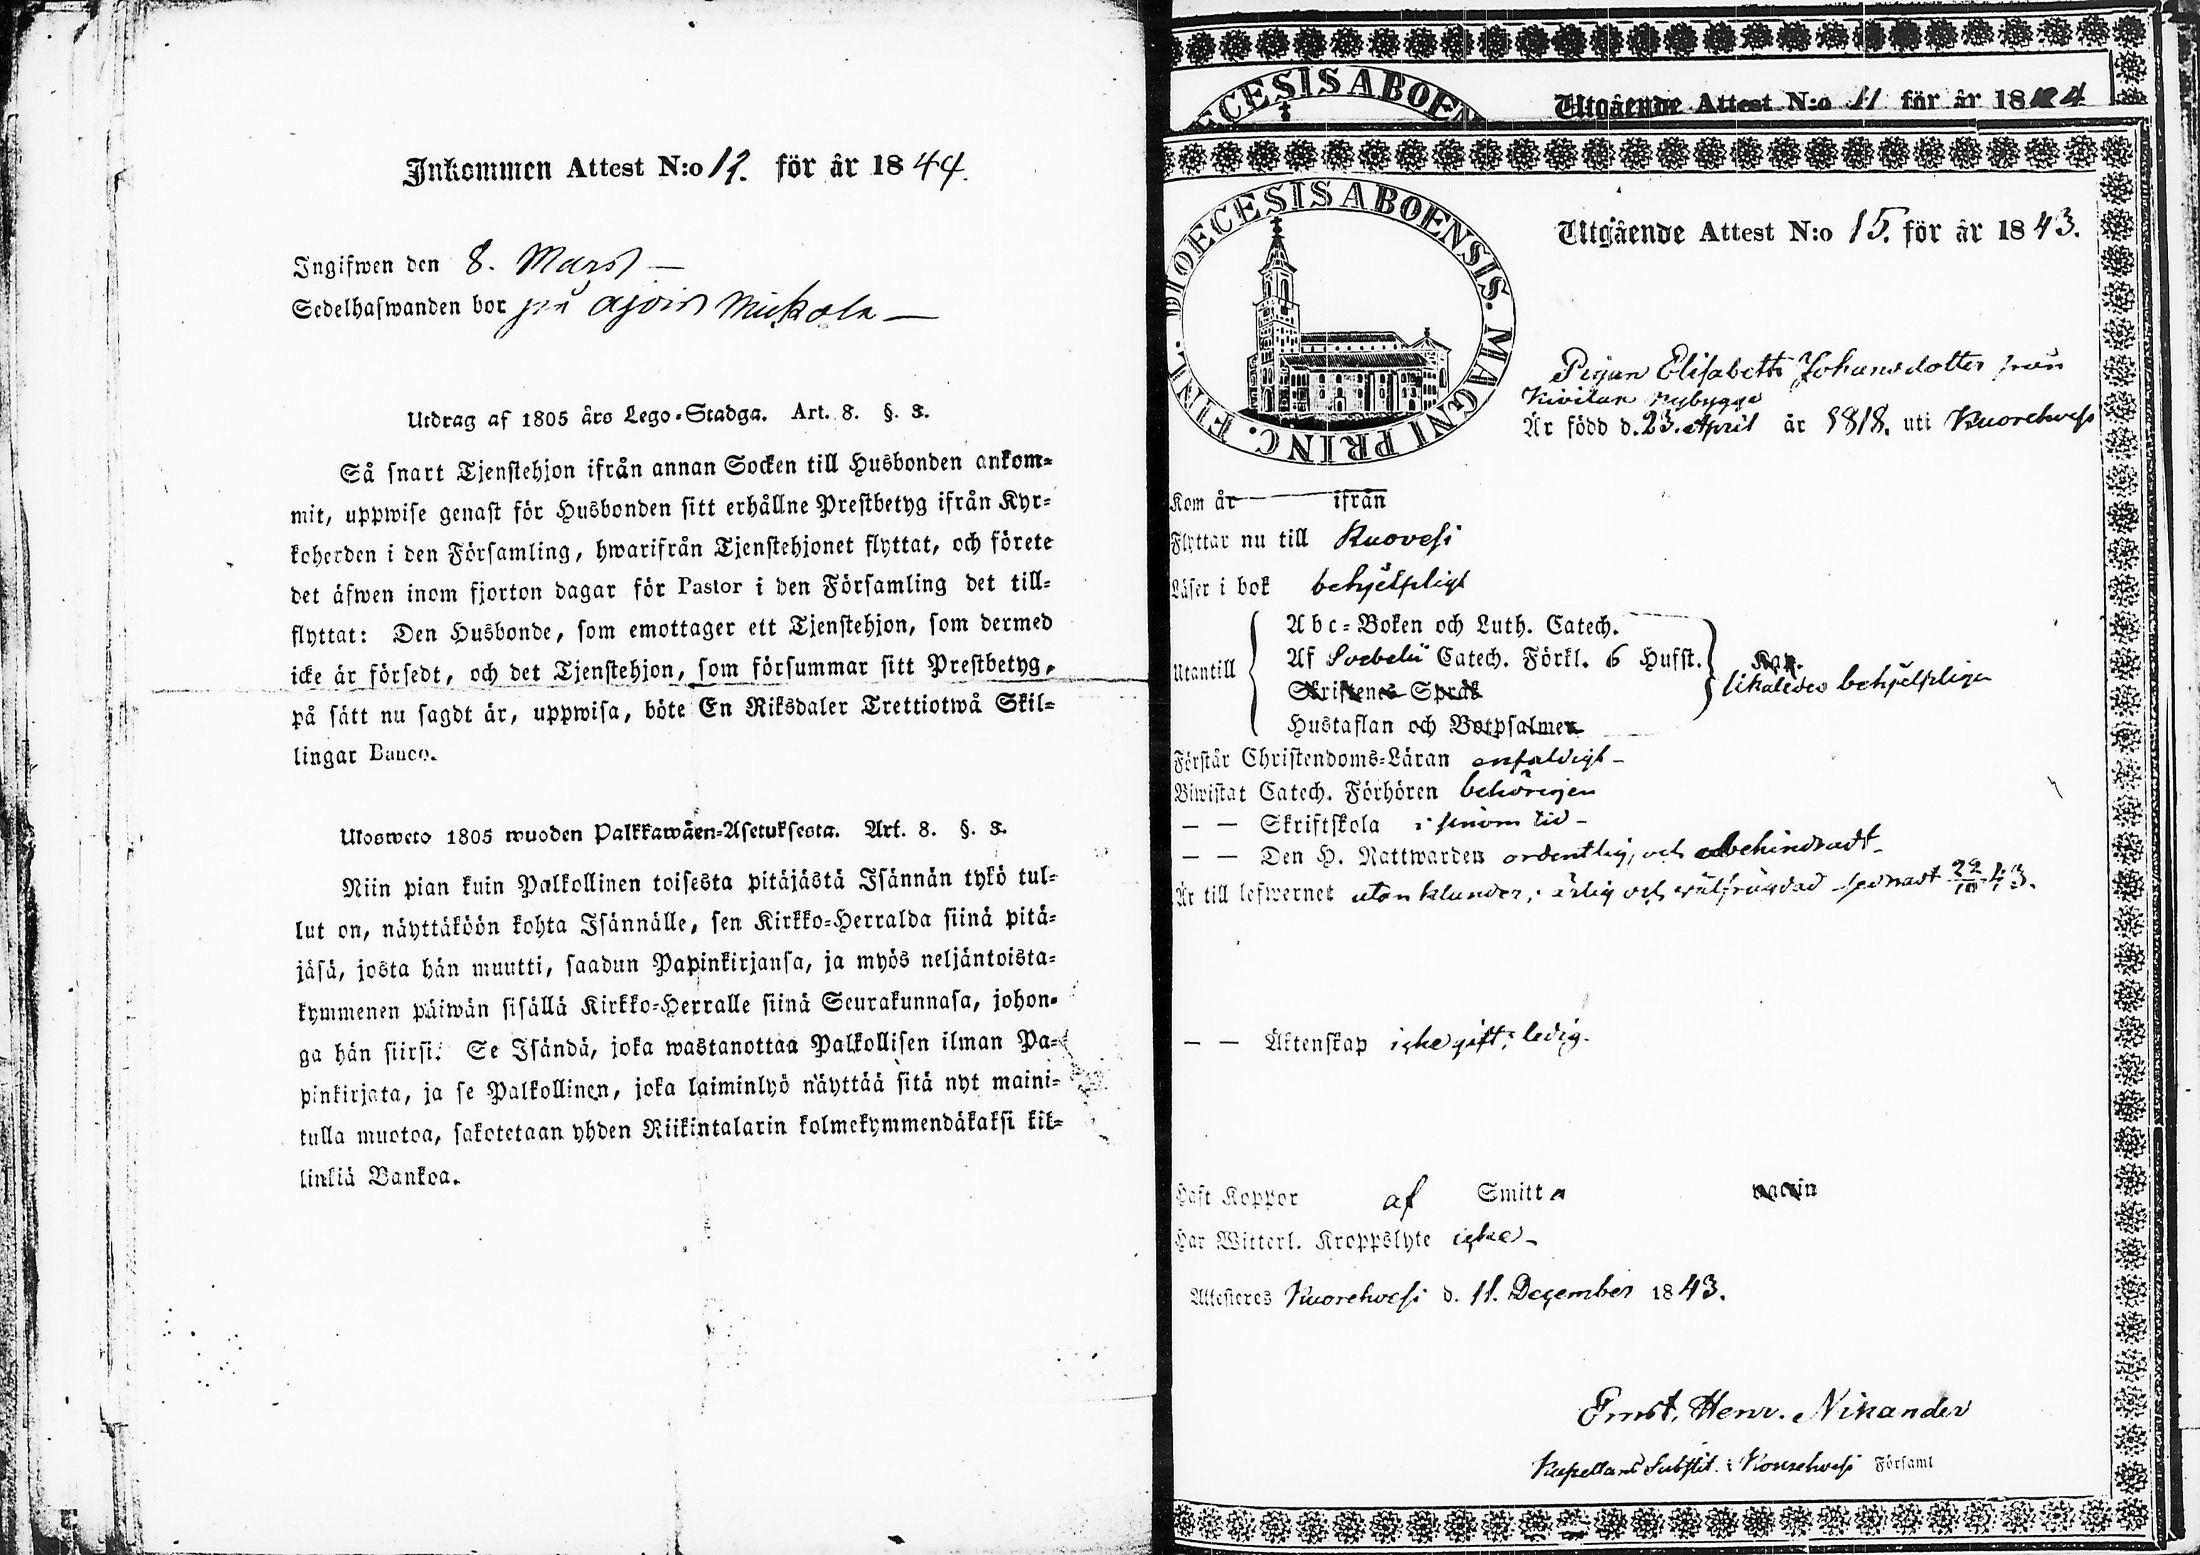 Inkommen Attest N:o 12. för år 1844.
Ingifwen den 8. Mars —
Sedelhafwanden bor på Ajois Mickola —
Utdrag af 1805 års Lego-Stadga. Art. 8. §. 3.
Så snart Tjenstehjon ifrån annan Socken till Husbonden ankom-
mit, uppwise genast för Husbonden sitt erhållne Prestbetyg ifrån Kyr-
koherden i den Församling, hwarifrån Tjenstehjonet flyttat, och förete
det äfwen inom fjorton dagar för Pastor i den Församling det till-
flyttat: Den Husbonde, som emottager ett Tjenstehjon, som dermed
icke är försedt, och det Tjenstehjon, som försummar sitt Prestbetyg,
på sätt nu sagdt är, uppwisa, böte En Riksdaler Trettiotwå Skil-
lingar Banco.
Ulosweto 1805 wuoden Palkkawäen-Asetuksesta. Art. 8. §. 3.
Niin pian kuin Palkollinen toisesta pitäjästä Isännän tykö tul-
lut on, näyttäköön kohta Isännälle, sen Kirkko-Herralda siinä pitä-
jäsä, josta hän muutti, saadun Papinkirjansa, ja myös neljäntoista-
kymmenen päiwän sisällä Kirkko-Herralle siinä Seurakunnasa, johon-
ga hän siirsi. Se Isändä, joka wastanottaa Palkollisen ilman Pa-
pinkirjata, ja se Palkollinen, joka laiminlyö näyttää sitä nyt maini-
tulla muotoa, sakotetaan yhden Riikintalarin kolmekymmendäkaksi kil-
linkiä Bankoa.
ECESIS ABOEN
Utgående Attest N:o 11 för år 1844
DIOECESIS ABOENSIS. MAGNI PRINC. FINL.
Utgående Attest N:o 15. för år 1843.
Pigan Elisabeth Johansdotter från
Kivilax nybygge
Är född d. 23. April år 1818. uti Kuorehvesi
Kom år — ifrån
Flyttar nu till Ruovesi
Läser i bok behjelpligt
Utantill
Abc-Boken och Luth. Catech.
Af Svebelii Catech. Förkl. 6 Hufst.
Skriftenes Språk
Hustaflan och Botpsalmer
likaledes behjelpligen
Förstår Christendoms-Läran enfaldigt —
Biwistat Catech. Förhören behörigen
— — Skriftskola i sinom tid —
— — Den H. Nattwarden ordentlig, och obehindradt —
Är till lefwernet utan klander; ärlig och wälfrägdad sednast 22/10 43.
— — Äktenskap icke gift; ledig.
Haft Koppor af Smitta vaccin
Har Witterl. Kroppslyte icke —
Attesteres Kuorehvesi d. 11. December 1843.
Ernst. Henr. Nikander
Kapellans Substit. i Kourehvesi Församl